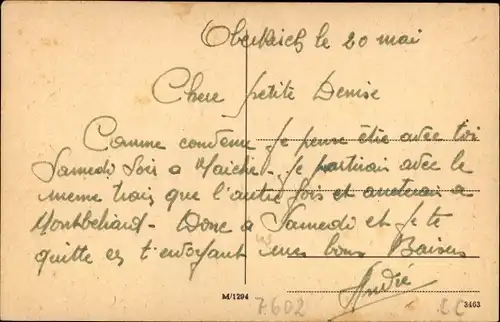 Oberkirch le 20 mai
Chere petite Denise
Comme convenu je pense être avec toi
Samedi soir a Maiche - je partirais avec le
meme train que l'autre fois et arretrais a
Montbéliard - Donc a Samedi et je te
quitte en t'envoyant mes bons Baisers
André
M/1294
7602
3463